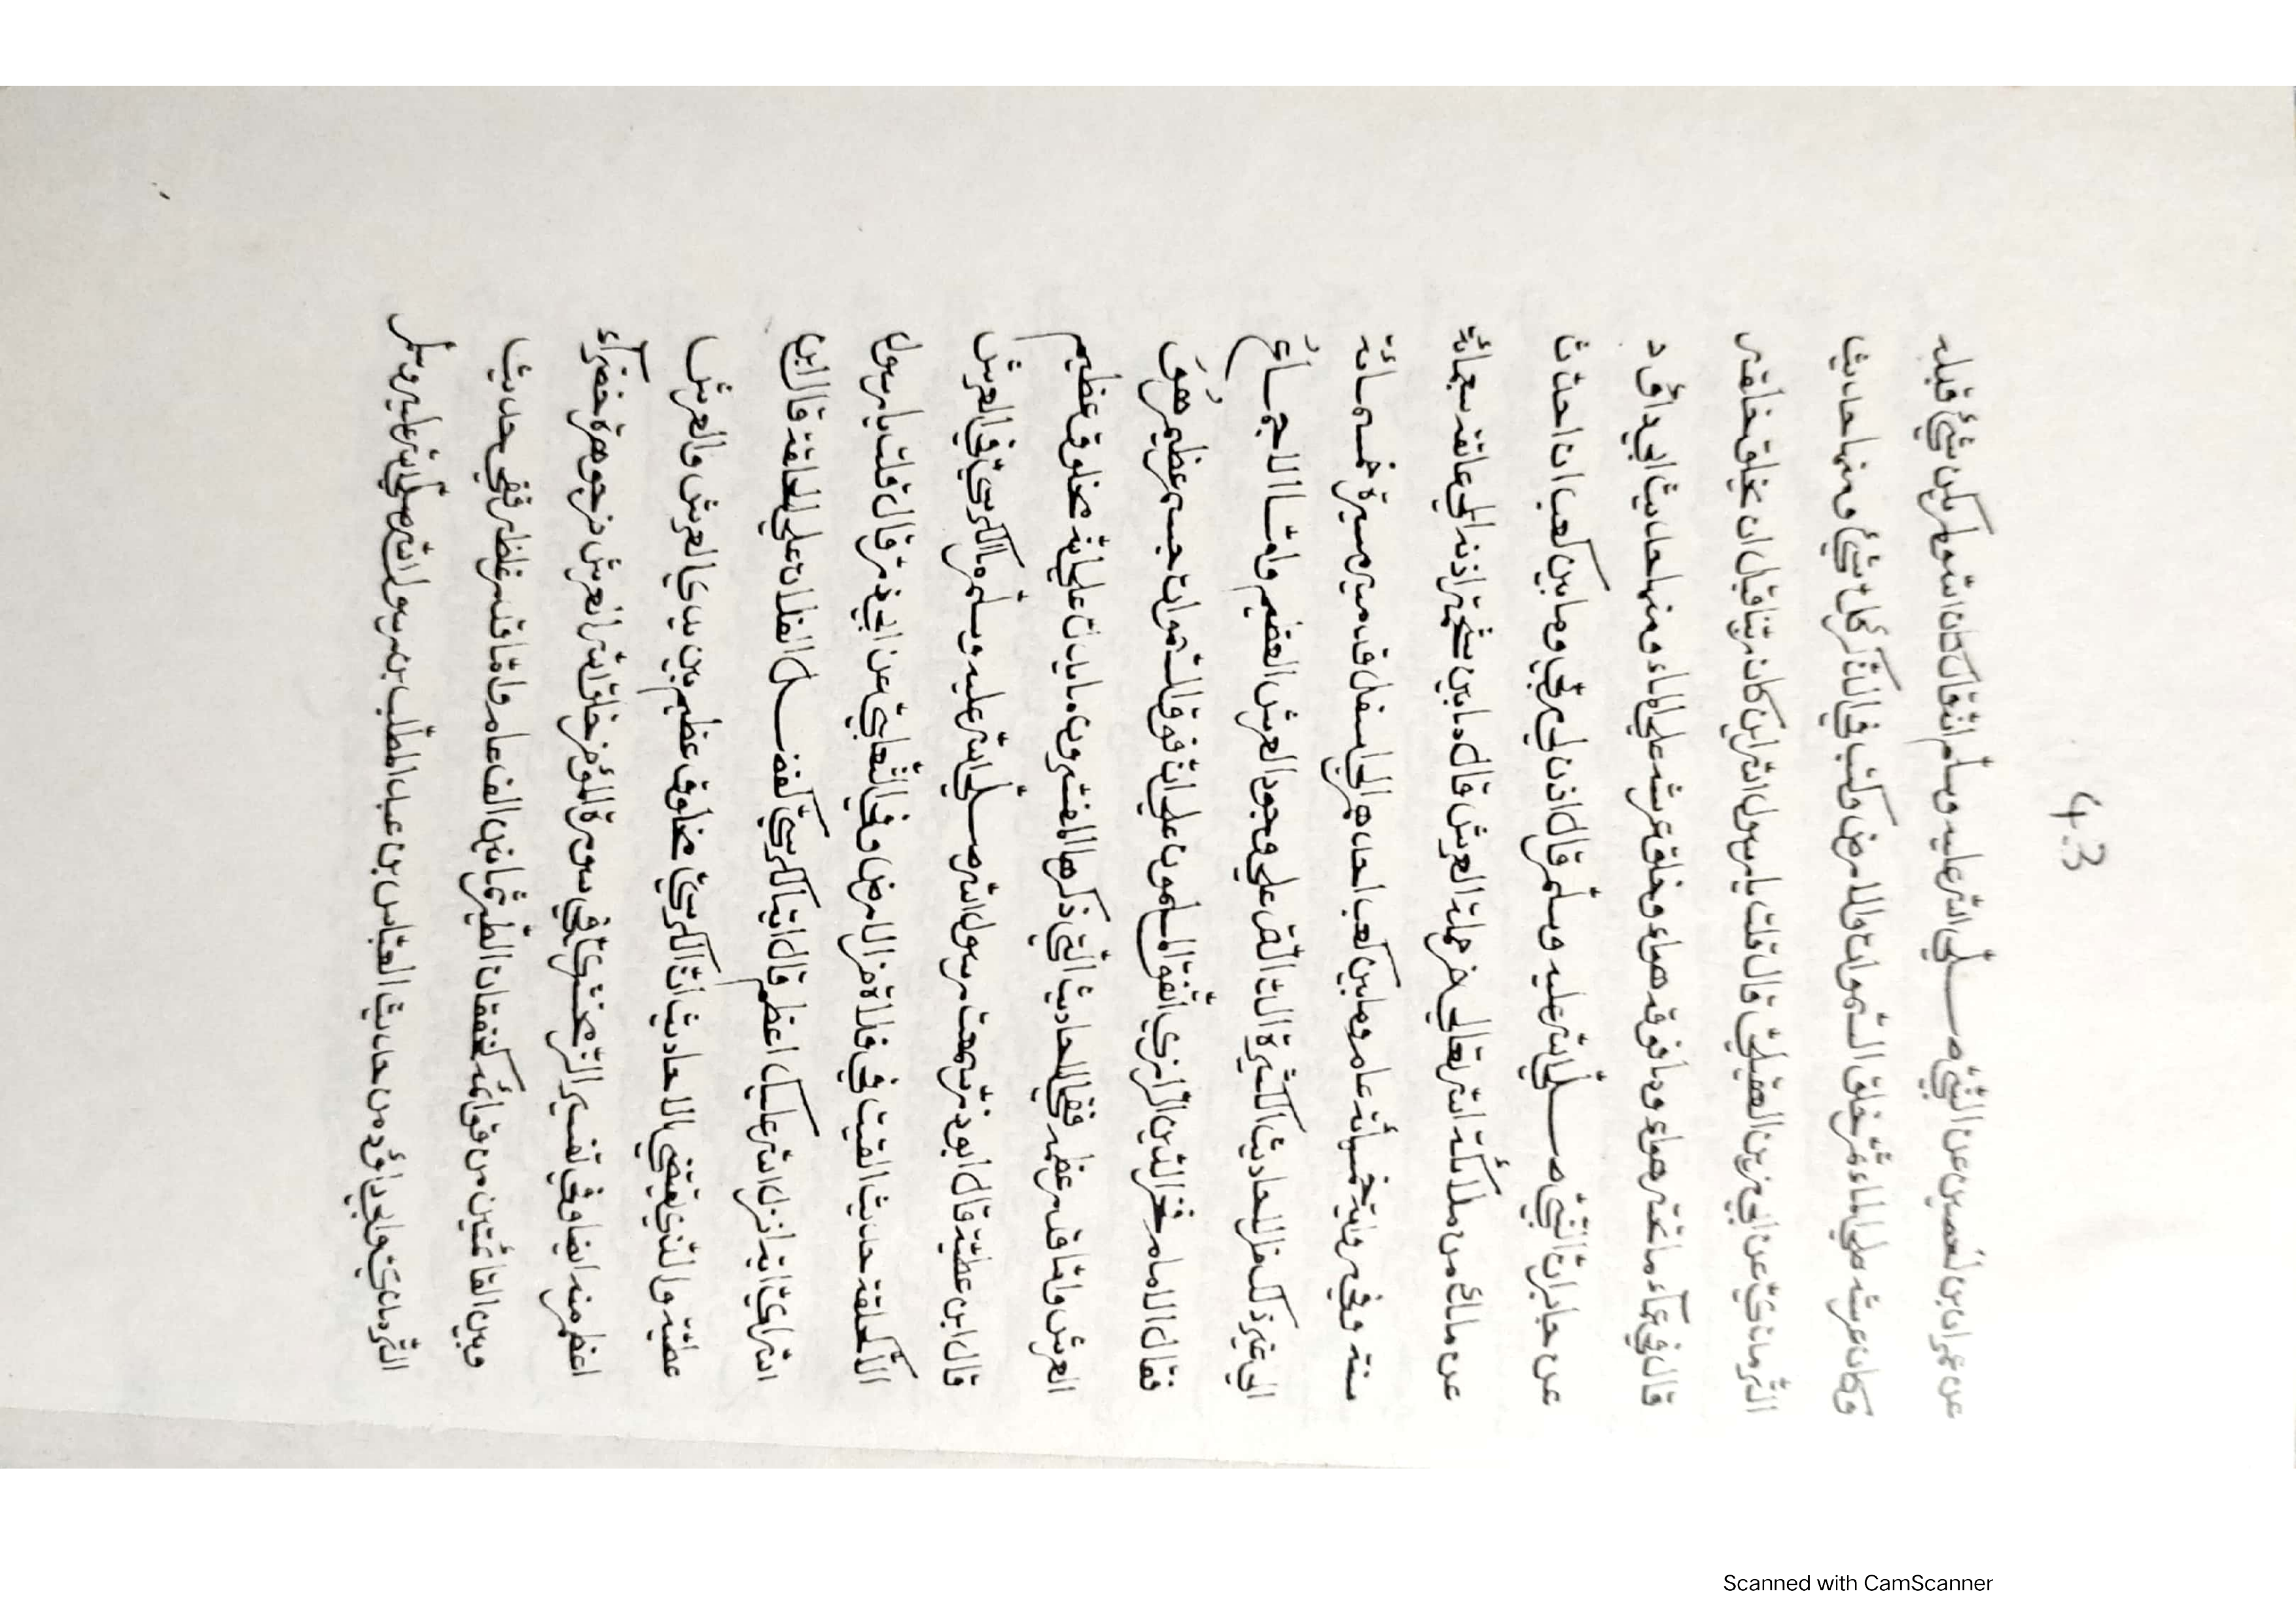 4.3
عن عمران بن حصين عن النّبيّ صلّي الله عليه وسلّم انّه قال كان الله ولم يكن شئ قبله
وكان عرشه علي الماء ثمّ خلق السّموات والارض وكتب في الذّكر كلّ شئ ومنها حديث
التّرمذيّ عن ابي رزين العقيليّ قال قلت يا رسول الله اين كان ربّنا قبل ان يخلق خلقه
قال في عمآء ما تحته هواء وما فوقه هواء وخلق عرشه علي الماء ومنها حديث ابي داؤد
عن جابر انّ النّبيّ صلّي الله عليه وسلّم قال اذن لي ربّي وما بين كعب ان احدث
عن ملك من ملائكة الله تعالي من حملة العرش قال ما بين شحمة اذنه الي عاتقه سبعمائة
سنة وفي رواية خمسمائة عام وما بين كعب احدهم الي اسفل قدميه مسيرة خمسمائة
الي غير ذلك من الاحاديث الكثيرة الدّالّة علي وجود العرش العظيم وامّا الاجماع
فقال الامام فخر الدّين الرّازي اتّفق المسلمون علي انّ فوق السّموات جسم عظيم هو
العرش وامّا قدر عظمه ففي الاحاديث الّتي ذكرها المفسّرون ما يدلّ علي انّه مخلوق عظيم
قال ابن عطيّة قال ابو ذرّ سمعت رسول الله صلّي الله عليه وسلّم ما الكرسيّ في العرش
الاّ كحلقة حديث القيت في فلاة من الارض وفي الثّعلبيّ عن ابي ذر قال قلت يا رسول
الله ايّ اية انزل الله عليك اعظم قال اية الكرسيّ كفضل الفلاة علي الحلقة قال ابن
عطيّة والّذي يقتضي الاحاديث انّ الكرسيّ مخلوق عظيم بين يدي العرش والعرش
اعظم منه ايضا وفي تفسير الزّمخشريّ في سورة المؤمن خلق الله العرش من جوهرة خضرآء
وبين القائمتين من قوائمه كخفقان الطّير ثمانين الف عام وامّا قدر غلظه ففي حديث
التّرمذيّ وابي داؤد من حديث العبّاس بن عبد المطّلب بن رسول الله صلّي الله عليه وسلّم